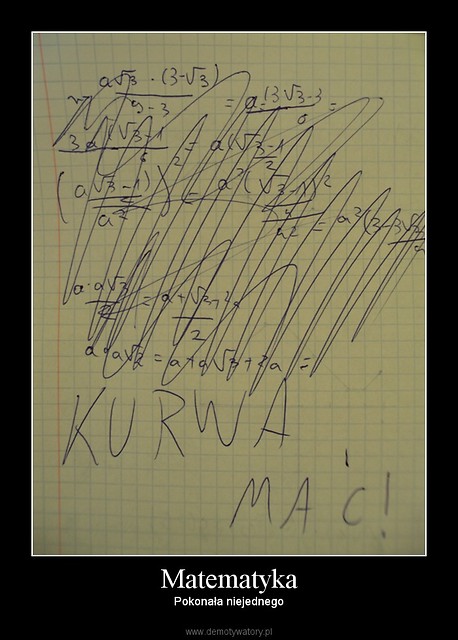 a√3 · (3-√3)
9-3
= a·(3√3-3
6
=
3a(√3-1
6
= a(√3-1
2
(a√3-1)² = a²(√3-1)²
a·a√3
2
= a+√3+2a
2
a·a√3 = a+a√3+2a =
KURWA
MAĆ!
Matematyka
Pokonała niejednego
www.demotywatory.pl